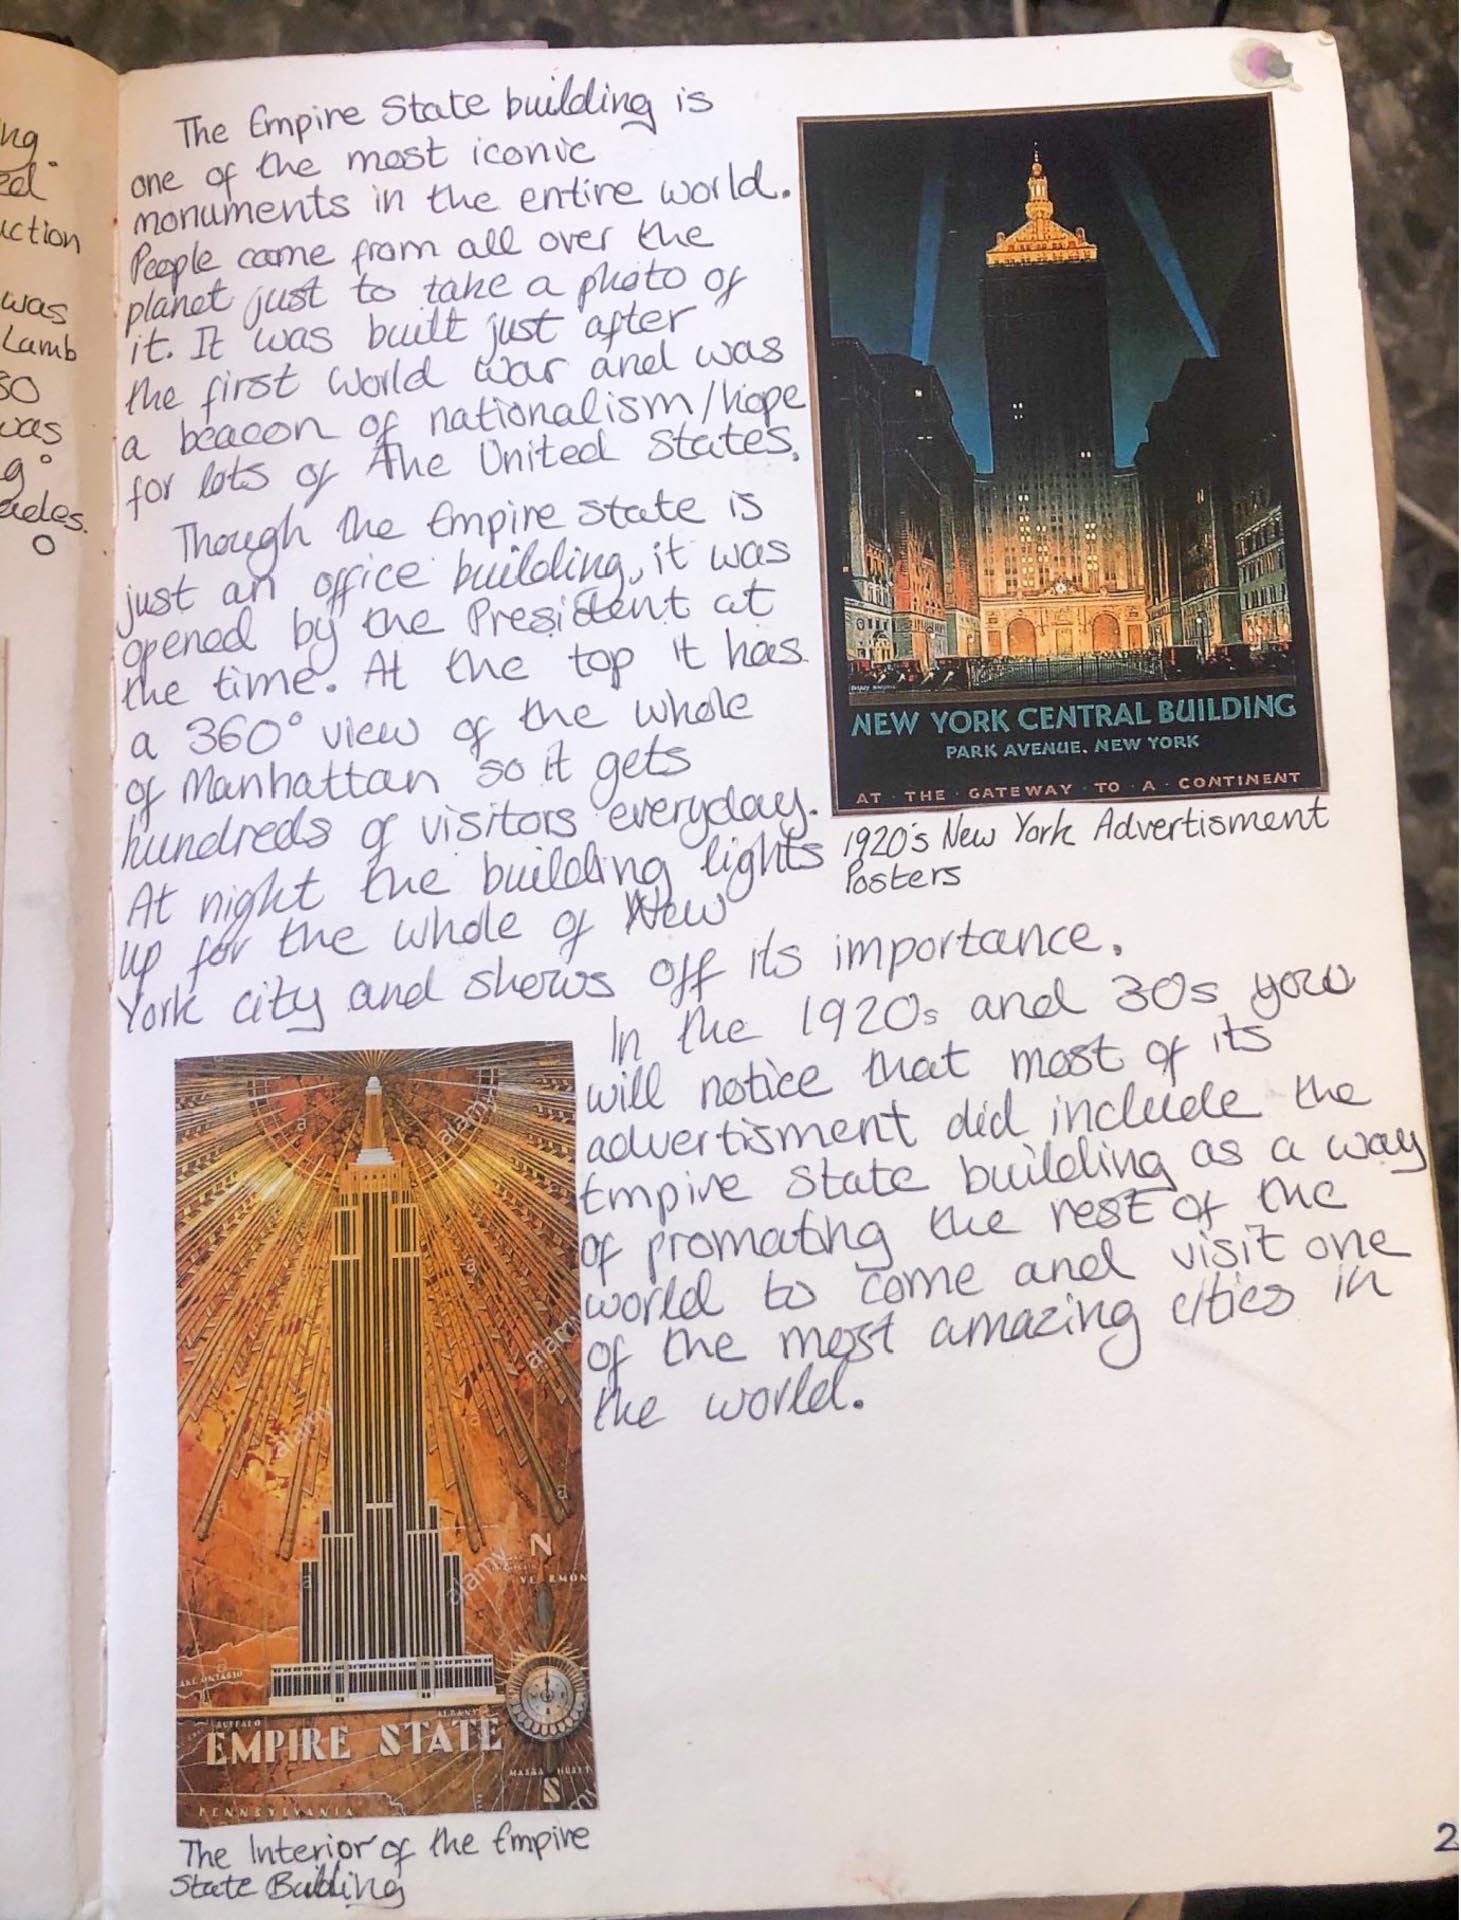 ng.
ed
uction
was
Lamb
so
was
g
ades.
The Empire State building is
one of the most iconic
monuments in the entire world.
People come from all over the
planet just to take a photo of
it. It was built just after
the first world war and was
a beacon of nationalism/hope
for lots of the United States.
Though the Empire State is
just an office building, it was
opened by the President at
the time. At the top it has
a 360° view of the whole
of Manhattan so it gets
hundreds of visitors everyday.
At night the building lights
up for the whole of New
York city and shows off its importance.
NEW YORK CENTRAL BUILDING
PARK AVENUE. NEW YORK
AT · THE · GATEWAY · TO · A · CONTINENT
1920's New York Advertisment
Posters
In the 1920s and 30s you
will notice that most of its
advertisment did include the
Empire State building as a way
of promoting the rest of the
world to come and visit one
of the most amazing cities in
the world.
alamy
alamy
alamy
alamy
N
LAKE ONTARIO
BUFFALO
ALBANY
EMPIRE STATE
S
PENNSYLVANIA
The Interior of the Empire
State Building
2